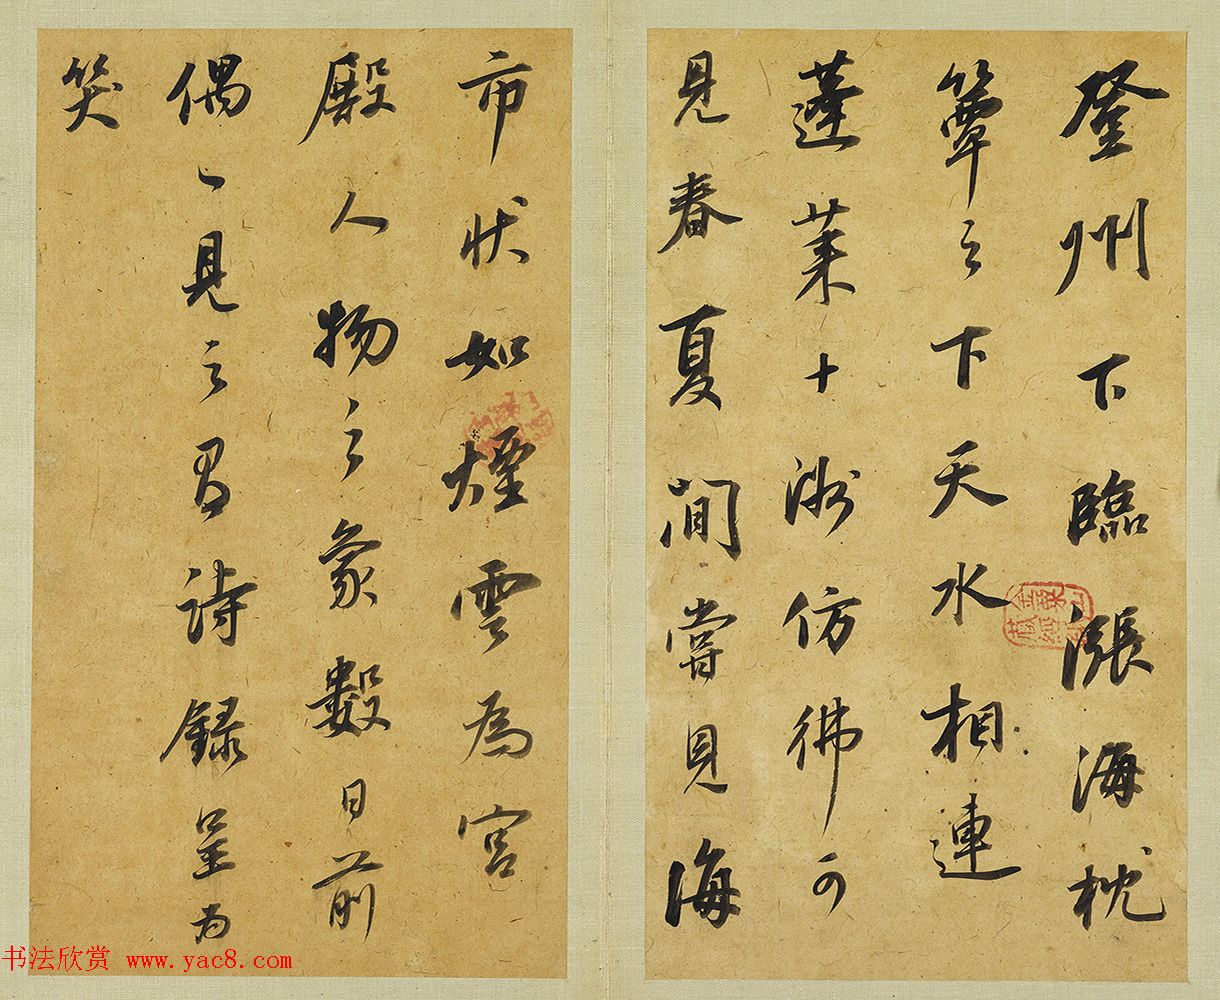 登州下臨漲海枕
簟之下天水相連
蓬莱十洲仿彿可
見春夏間嘗見海
市状如煙雲為宮
殿人物之象數日前
偶一見之有詩録呈為
笑
書法欣赏 www.yac8.com